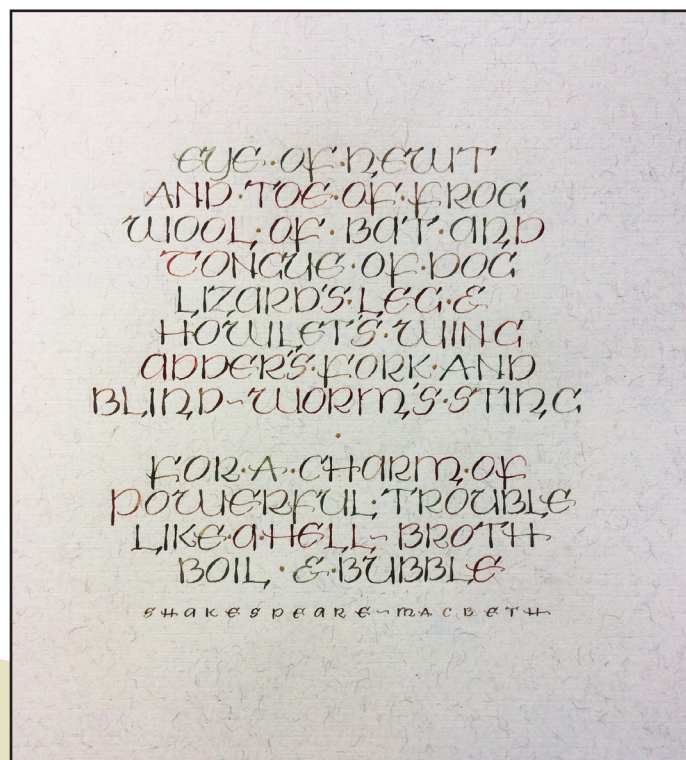 EYE · OF · NEWT
AND · TOE · OF · FROG
WOOL · OF · BAT · AND
TONGUE · OF · DOG
LIZARD'S · LEG · &
HOWLET'S · WING
ADDER'S · FORK · AND
BLIND~WORM'S · STING
FOR · A · CHARM · OF
POWERFUL · TROUBLE
LIKE · A · HELL~BROTH
BOIL · & · BUBBLE
SHAKESPEARE~MACBETH